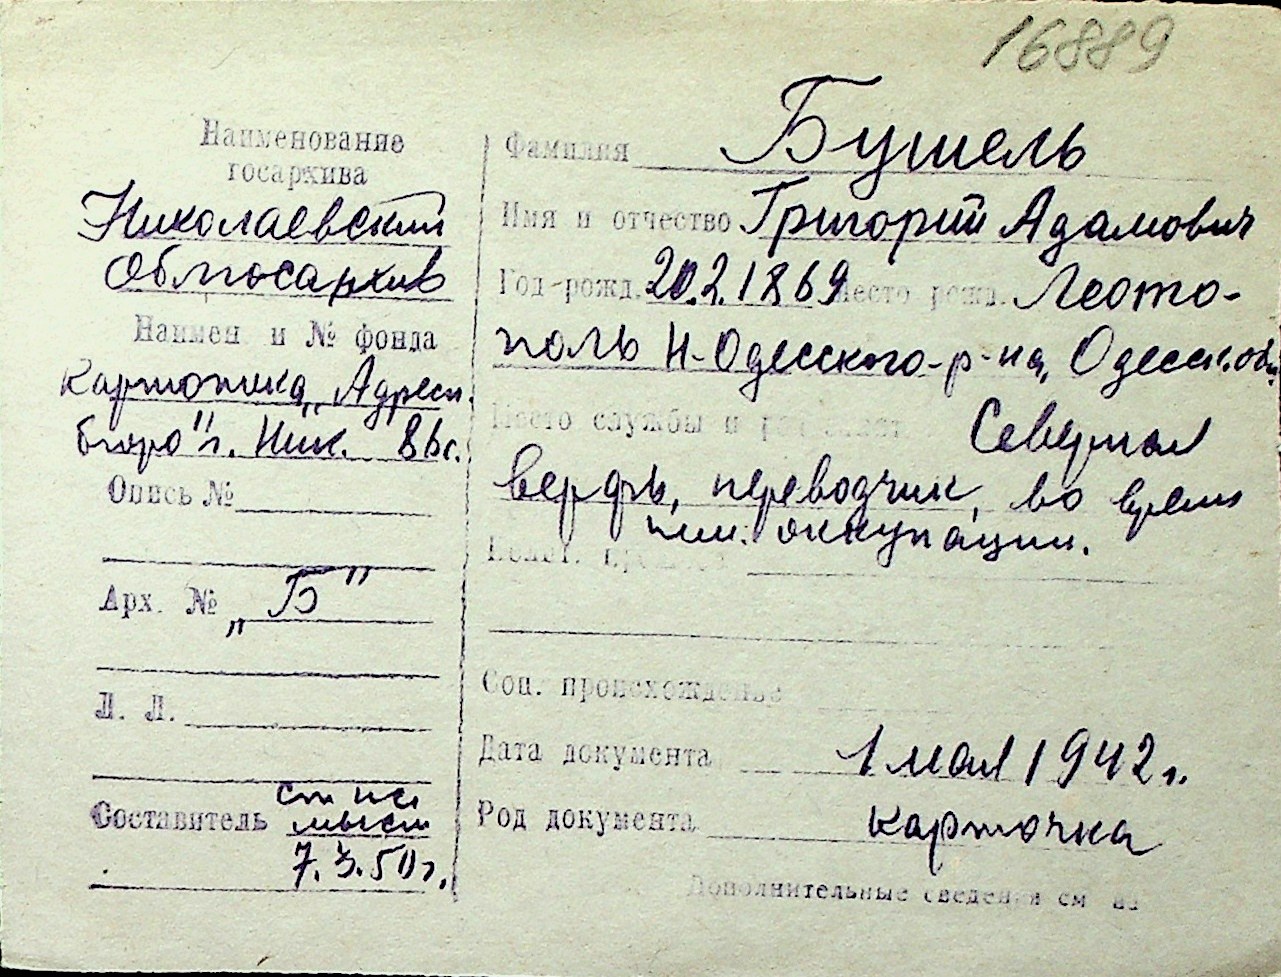 16889
Наименование
госархива
Николаевский
Облгосархив
Наимен и № фонда
Картотека „Адресн.
бюро" г. Ник. 86с.
Опись №
Арх. № „Б"
Л. Л.
Составитель
7.3.50г.
Фамилия Бушель
Имя и отчество Григорий Адамович
Год рожд. 20.2.1869 Место рожд. Леото-
поль Н-Одесского р-на, Одесск. обл.
Место службы и Северная
верфь, переводчик, во время
нем. оккупации.
Соц. происхождение
Дата документа 1 мая 1942 г.
Род документа карточка
Дополнительные сведения см на